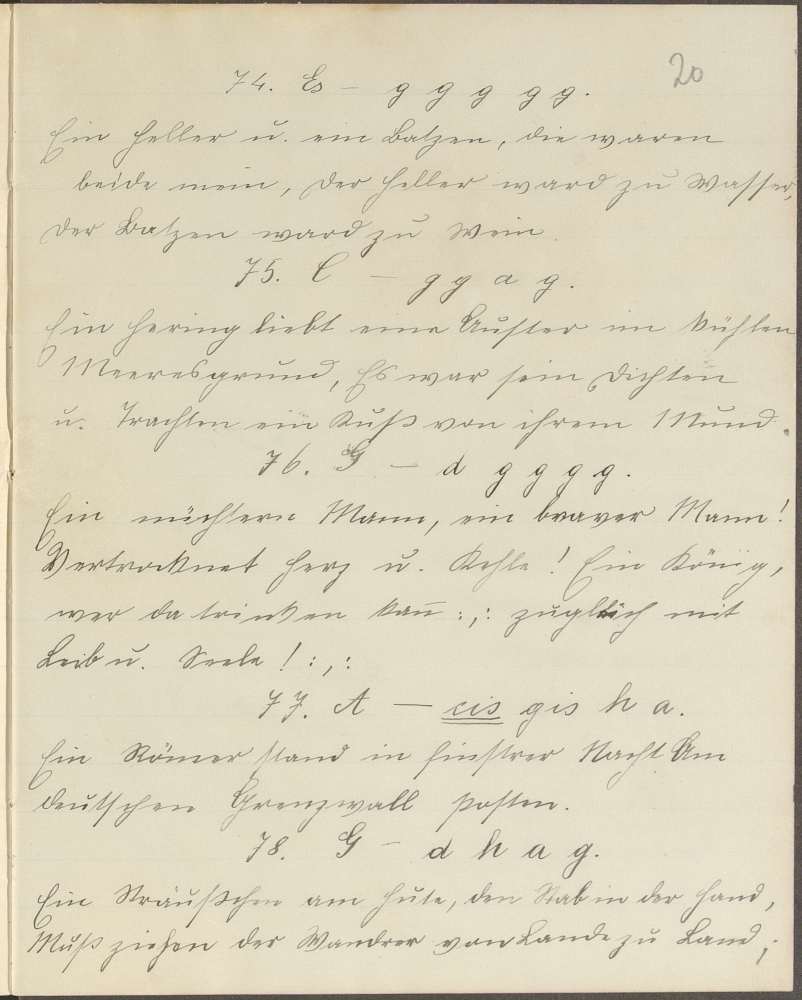 20
74. Es – g g g g g.
Ein Heller u. ein Batzen, die waren
beide mein, Der Heller ward zu Wasser,
Der Batzen ward zu Wein
75. C – g g a g.
Ein Hering liebt eine Auster im kühlen
Meeresgrund, Es war sein Dichten
u. Trachten ein Kuß von ihrem Mund.
76. G – d g g g g.
Ein nüchtern Mann, ein braver Mann!
Vertrocknet Herz u. Kehle! Ein König,
wer da trinken kann̄ :,: zugleich mit
Leib u. Seele! :,:
77. A – cis gis h a.
Ein Römer stand in finstrer Nacht Am
deutschen Grenzwall Posten.
78. G – d h a g.
Ein Sträußchen am Hute, den Stab in der Hand,
Muß ziehen der Wandrer von Lande zu Land,.